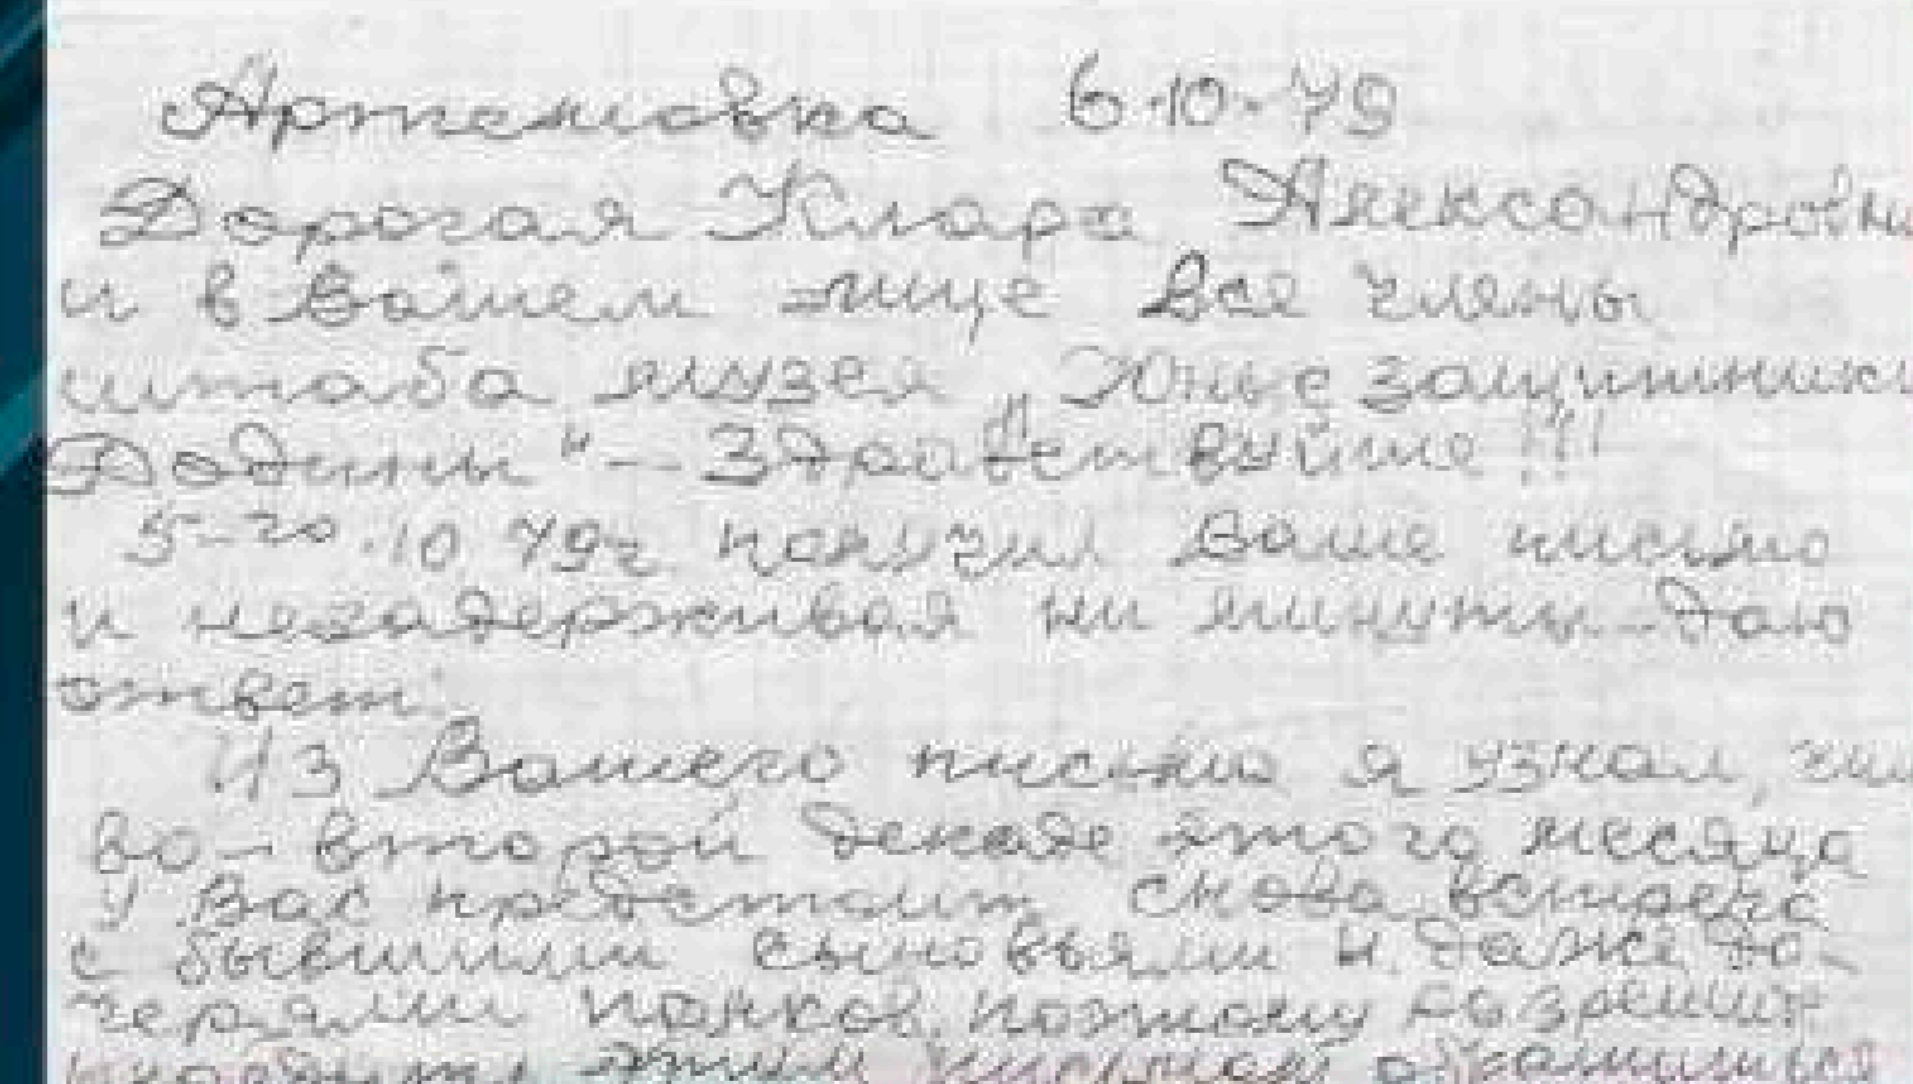 Артемовка 6.10.79
Дорогая Клара Александровна
и в Вашем лице все члены
штаба музея „Юные защитники
Додины" — Здравствуйте!!!
5-го.10.79г получил Ваше письмо
и незадерживая ни минуты - даю
ответ:
Из Вашего письма я узнал,
во-второй декаде этого месяца
у Вас предстоит снова встреча
с бывшими сыновьями и даже до-
черями полков, поэтому разрешите
этим письмом